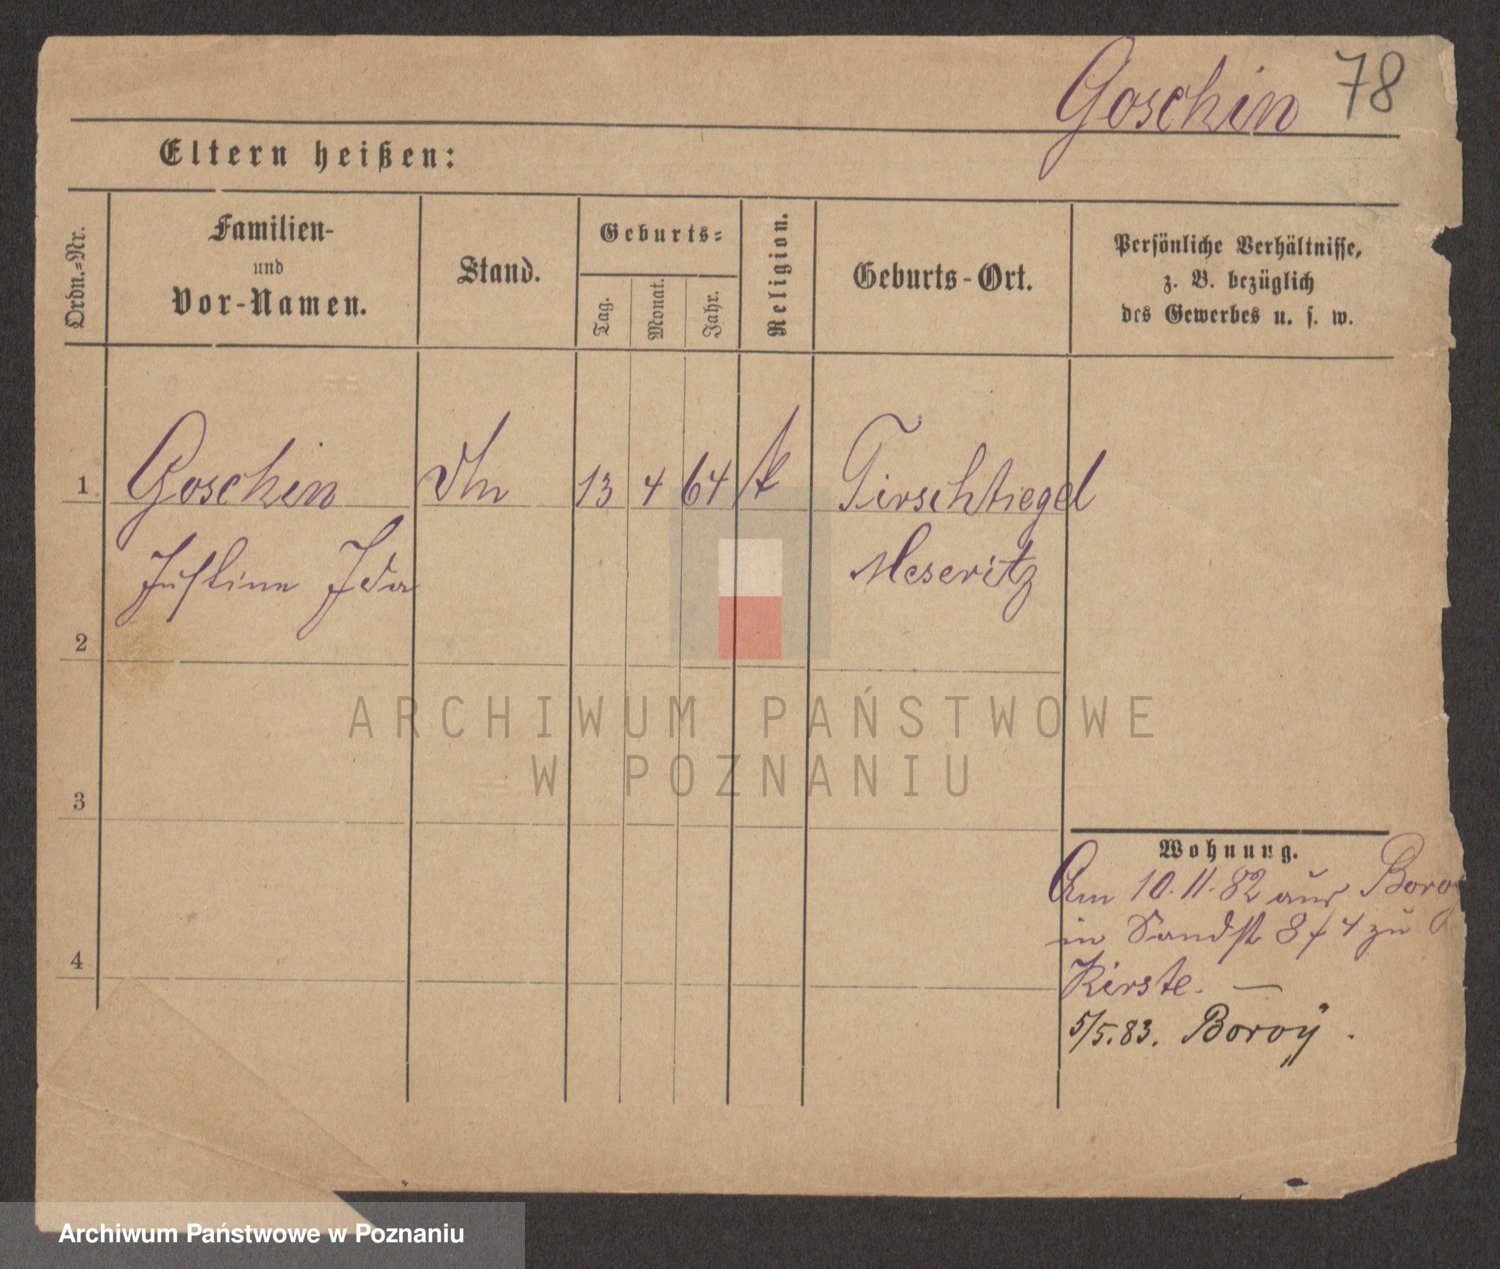 Goschin 78
Eltern heißen:
Ordn.=Nr.
Familien-
und
Vor-Namen.
Stand.
Geburts=
Tag.
Monat.
Jahr.
Religion.
Geburts-Ort.
Persönliche Verhältnisse,
z. B. bezüglich
des Gewerbes u. s. w.
1 Goschin 13 4 64 k Tirschtiegel
Justine Ida Meseritz
2
ARCHIWUM PAŃSTWOWE
W POZNANIU
3
Wohnung.
Am 10.11.82 aus
in Sandstr 8/4 zu
4
Kirste. —
5/5.83. Boroÿ.
Archiwum Państwowe w Poznaniu